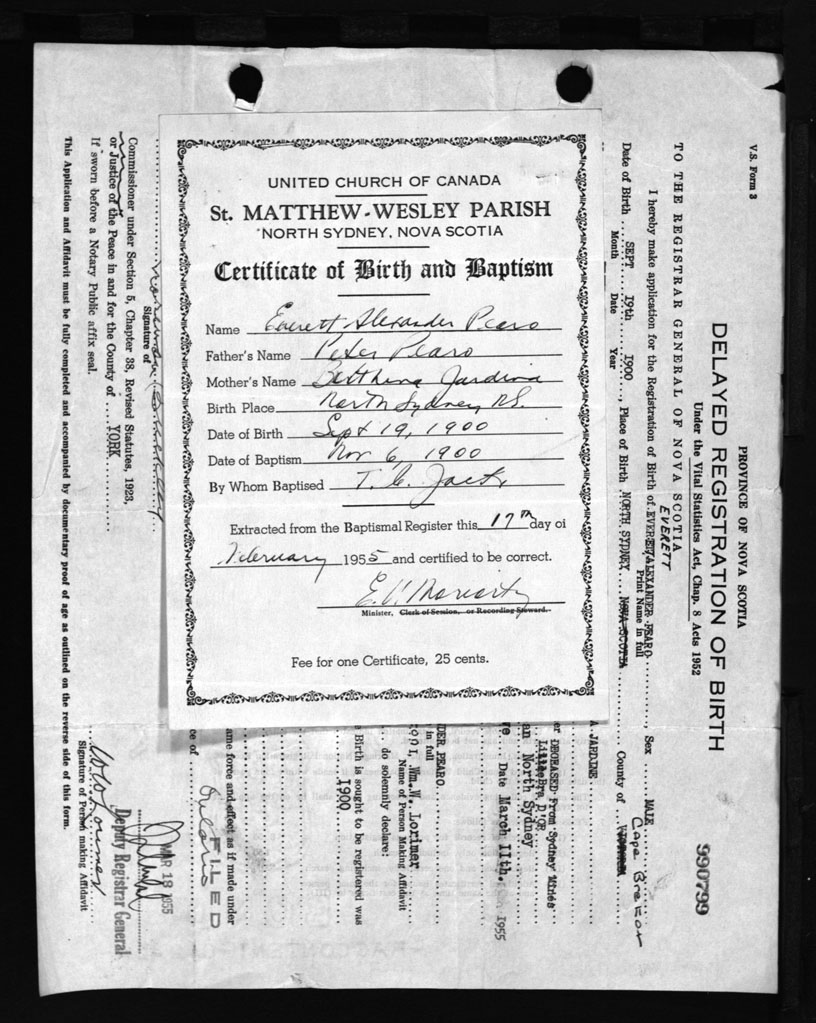 UNITED CHURCH OF CANADA
St. MATTHEW-WESLEY PARISH
NORTH SYDNEY, NOVA SCOTIA
Certificate of Birth and Baptism
Name Everett Alexander Pearo
Father's Name Peter Pearo
Mother's Name Jardine
Birth Place North Sydney N.S.
Date of Birth Sept 19, 1900
Date of Baptism Nov 6, 1900
By Whom Baptised T. C. Jack
Extracted from the Baptismal Register this 17th day of
February 1955 and certified to be correct.
E. V. Moriarty
Minister, Clerk of Session, or Recording Steward.
Fee for one Certificate, 25 cents.
V.S. Form 3
990799
PROVINCE OF NOVA SCOTIA
DELAYED REGISTRATION OF BIRTH
Under the Vital Statistics Act, Chap. 8 Acts 1952
TO THE REGISTRAR GENERAL OF NOVA SCOTIA
EVERETT
I hereby make application for the Registration of Birth of ALEXANDER PEARO, Sex MALE
Print Name in full
Cape Breton
Date of Birth SEPT 19th 1900, Place of Birth NORTH SYDNEY NOVA SCOTIA County of
Month Date Year
A JARDINE
er DECEASED From Sydney Mines
Little Bra D'OR
an North Sydney
Date March 11th. 1955
DER PEARO
in full
I, Wm.W. Lorimer
Name of Person Making Affidavit
do solemnly declare:
e Birth is sought to be registered was
1900.
ame force and effect as if made under
ce of Ontario
FILED
MAR 18 1955
Deputy Registrar General
Signature of
Commissioner under Section 5, Chapter 38, Revised Statutes, 1923,
or Justice of the Peace in and for the County of YORK
If sworn before a Notary Public affix seal.
Signature of Person making Affidavit
This Application and Affidavit must be fully completed and accompanied by documentary proof of age as outlined on the reverse side of this form.